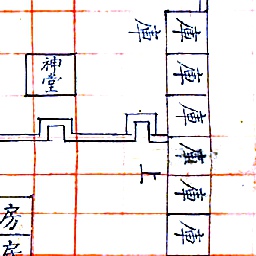 庫
庫
庫
庫
庫
庫
庫
神堂
上
房
房